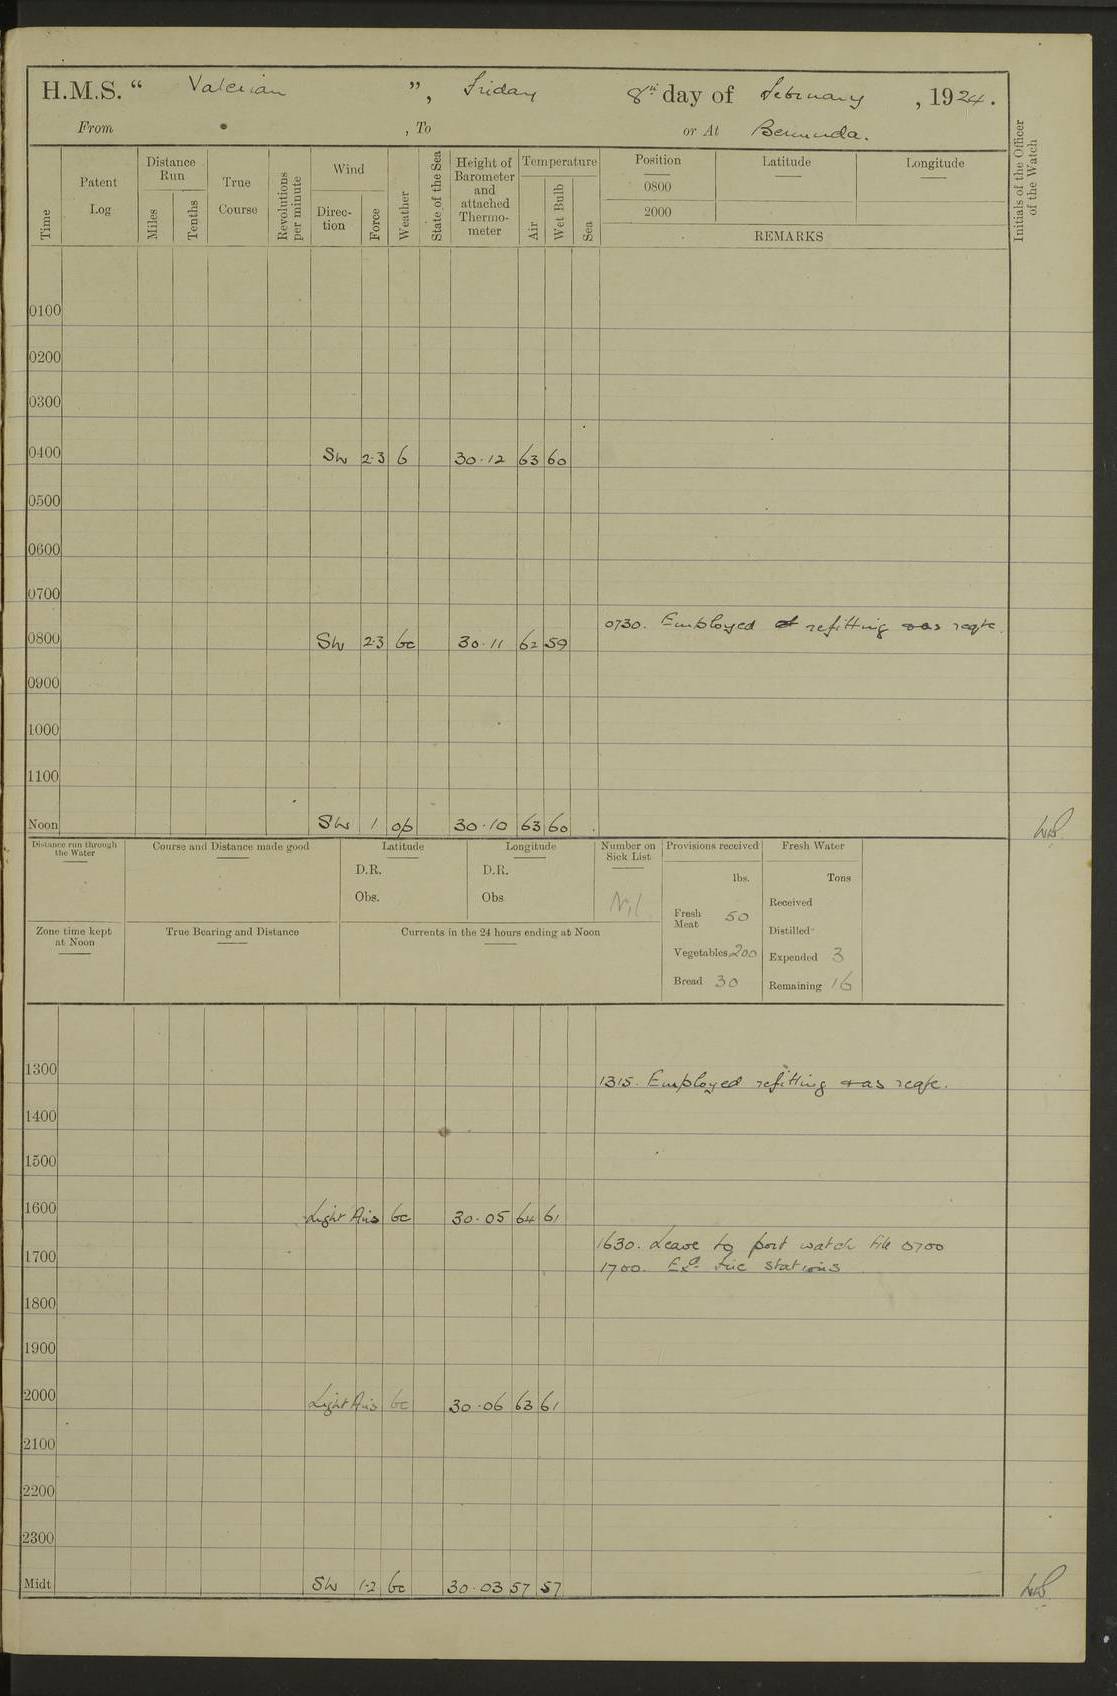 H.M.S. “ Valerian ”, Friday 8th day of February, 1924.
From , To or At Bermuda.
Time
Patent Log
Distance Run
Miles
Tenths
True Course
Revolutions per minute
Wind
Direction
Force
Weather
State of the Sea
Height of Barometer and attached Thermometer
Temperature
Air
Wet Bulb
Sea
Position Latitude Longitude
0800
2000
REMARKS
Initials of the Officer of the Watch
0100
0200
0300
0400 SW 2·3 b 30·12 63 60
0500
0600
0700
0730. Employed refitting + as reqte.
0800 SW 2·3 bc 30·11 62 59
0900
1000
1100
Noon SW 1 op 30·10 63 60
Distance run through the Water
Course and Distance made good
Latitude
D.R.
Obs.
Longitude
D.R.
Obs
Number on Sick List
Nil
Provisions received
lbs.
Fresh Meat 50
Vegetables 200
Bread 30
Fresh Water
Tons
Received
Distilled
Expended 3
Remaining 16
Zone time kept at Noon
True Bearing and Distance
Currents in the 24 hours ending at Noon
1300
1315. Employed refitting + as reqte.
1400
1500
1600 Light Airs bc 30·05 64 61
1630. Leave to port watch till 0700
1700
1700. Exd. fire stations
1800
1900
2000 Light Airs bc 30·06 63 61
2100
2200
2300
Midt SW 1-2 bc 30·03 57 57